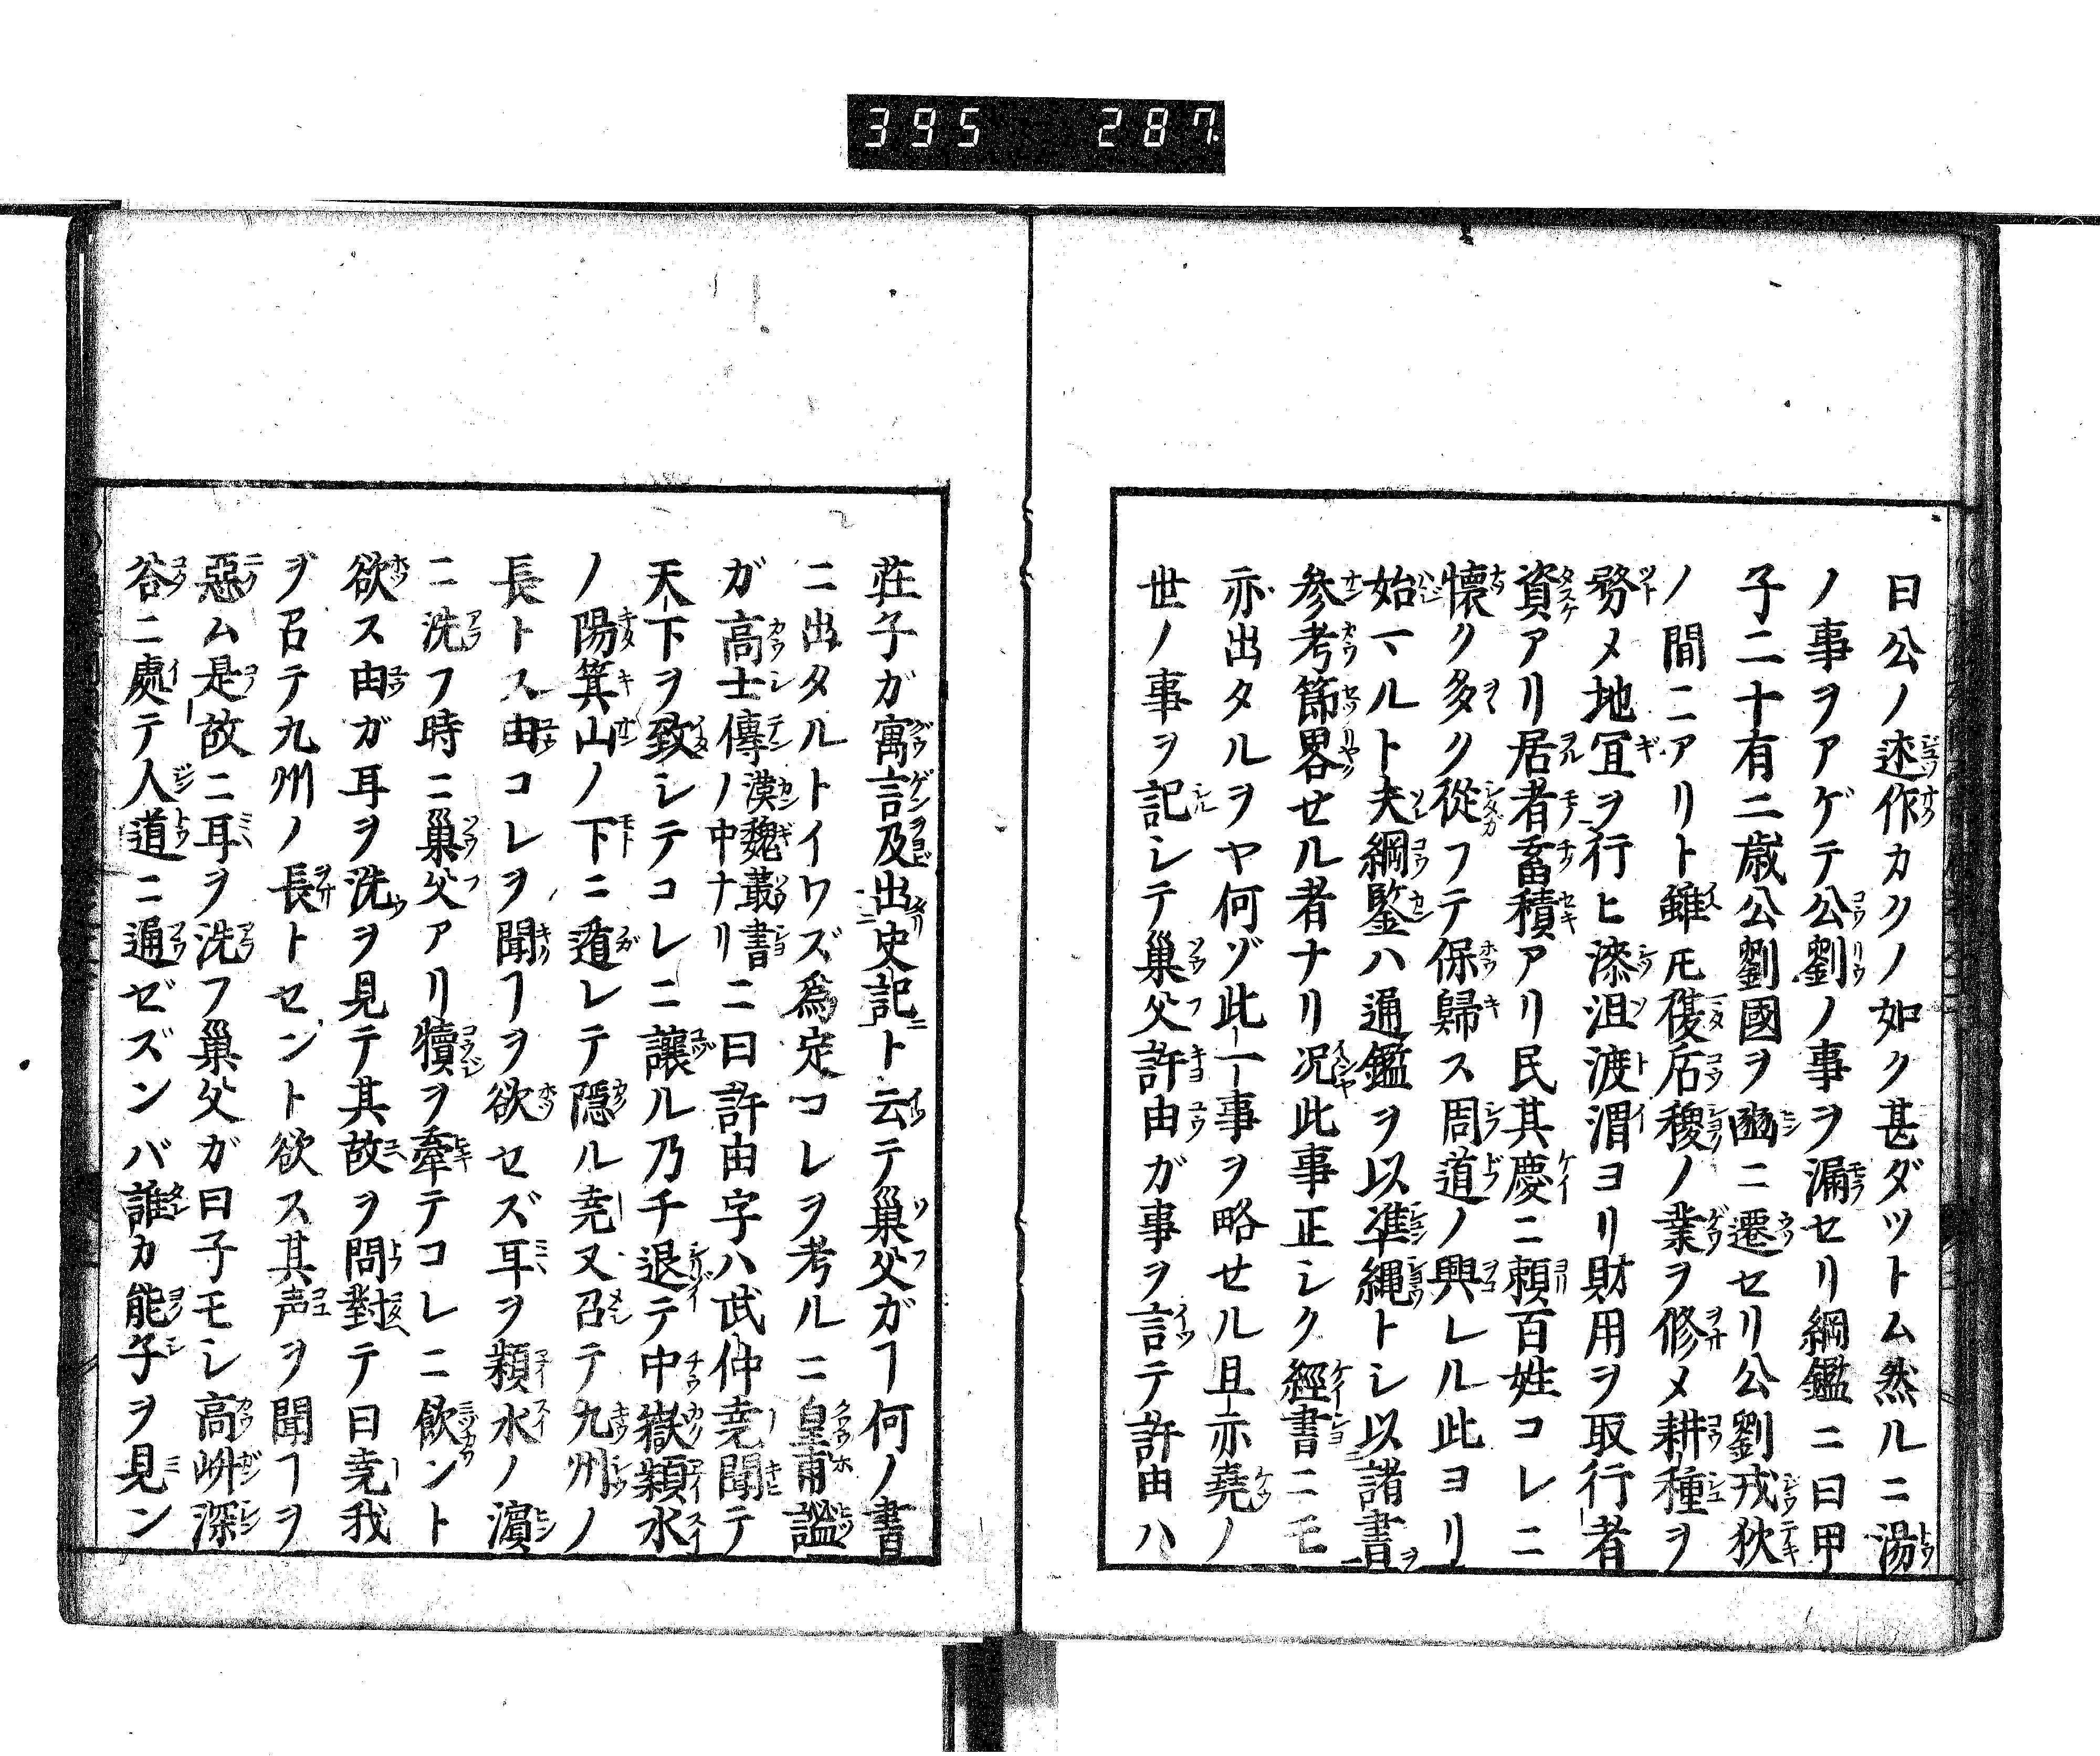 395 287
日公ノ述作カクノ如ク甚ダツトム然ルニ湯
ノ事ヲアゲテ公劉ノ事ヲ漏セリ綱鑑ニ曰甲
子二十有二歳公劉國ヲ豳ニ遷セリ公劉戎狄
ノ間ニアリト雖𪜈復后稷ノ業ヲ修メ耕種ヲ
務メ地冝ヲ行ヒ漆沮渡渭ヨリ財用ヲ取行者
資アリ居者畜積アリ民其慶ニ頼百姓コレニ
懐ク多ク從フテ保歸ス周道ノ興レル此ヨリ
始マルト夫綱鑒ハ通鑑ヲ以凖縄トシ以諸書
参考節畧せル者ナリ况此事正シク經書ニモ
亦出タルヲヤ何ゾ此一事ヲ略せル且亦堯ノ
世ノ事ヲ記シテ巣父許由ガ事ヲ言テ許由ハ
荘子ガ寓言及出史記ト云テ巣父ガヿ何ノ書
ニ出タルトイワズ為定コレヲ考ルニ皇甫謐
ガ高士傳ノ漢魏叢書中ナリニ曰許由字ハ武仲尭聞テ
天下ヲ致シテコレニ譲ル乃チ退テ中嶽穎水
ノ陽箕山ノ下ニ遁レテ隠ル尭又召テ九州ノ
長トス由コレヲ聞ヿヲ欲セズ耳ヲ穎水ノ濵
ニ洗フ時ニ巣父アリ犢ヲ牽テコレニ飲ント
欲ス由ガ耳ヲ洗ヲ見テ其故ヲ問對テ曰尭我
ヲ召テ九州ノ長トセント欲ス其声ヲ聞ヿヲ
惡ム是故ニ耳ヲ洗フ巣父ガ曰子モシ高岸深
谷ニ處テ人道ニ通ゼズンバ誰カ能子ヲ見ン